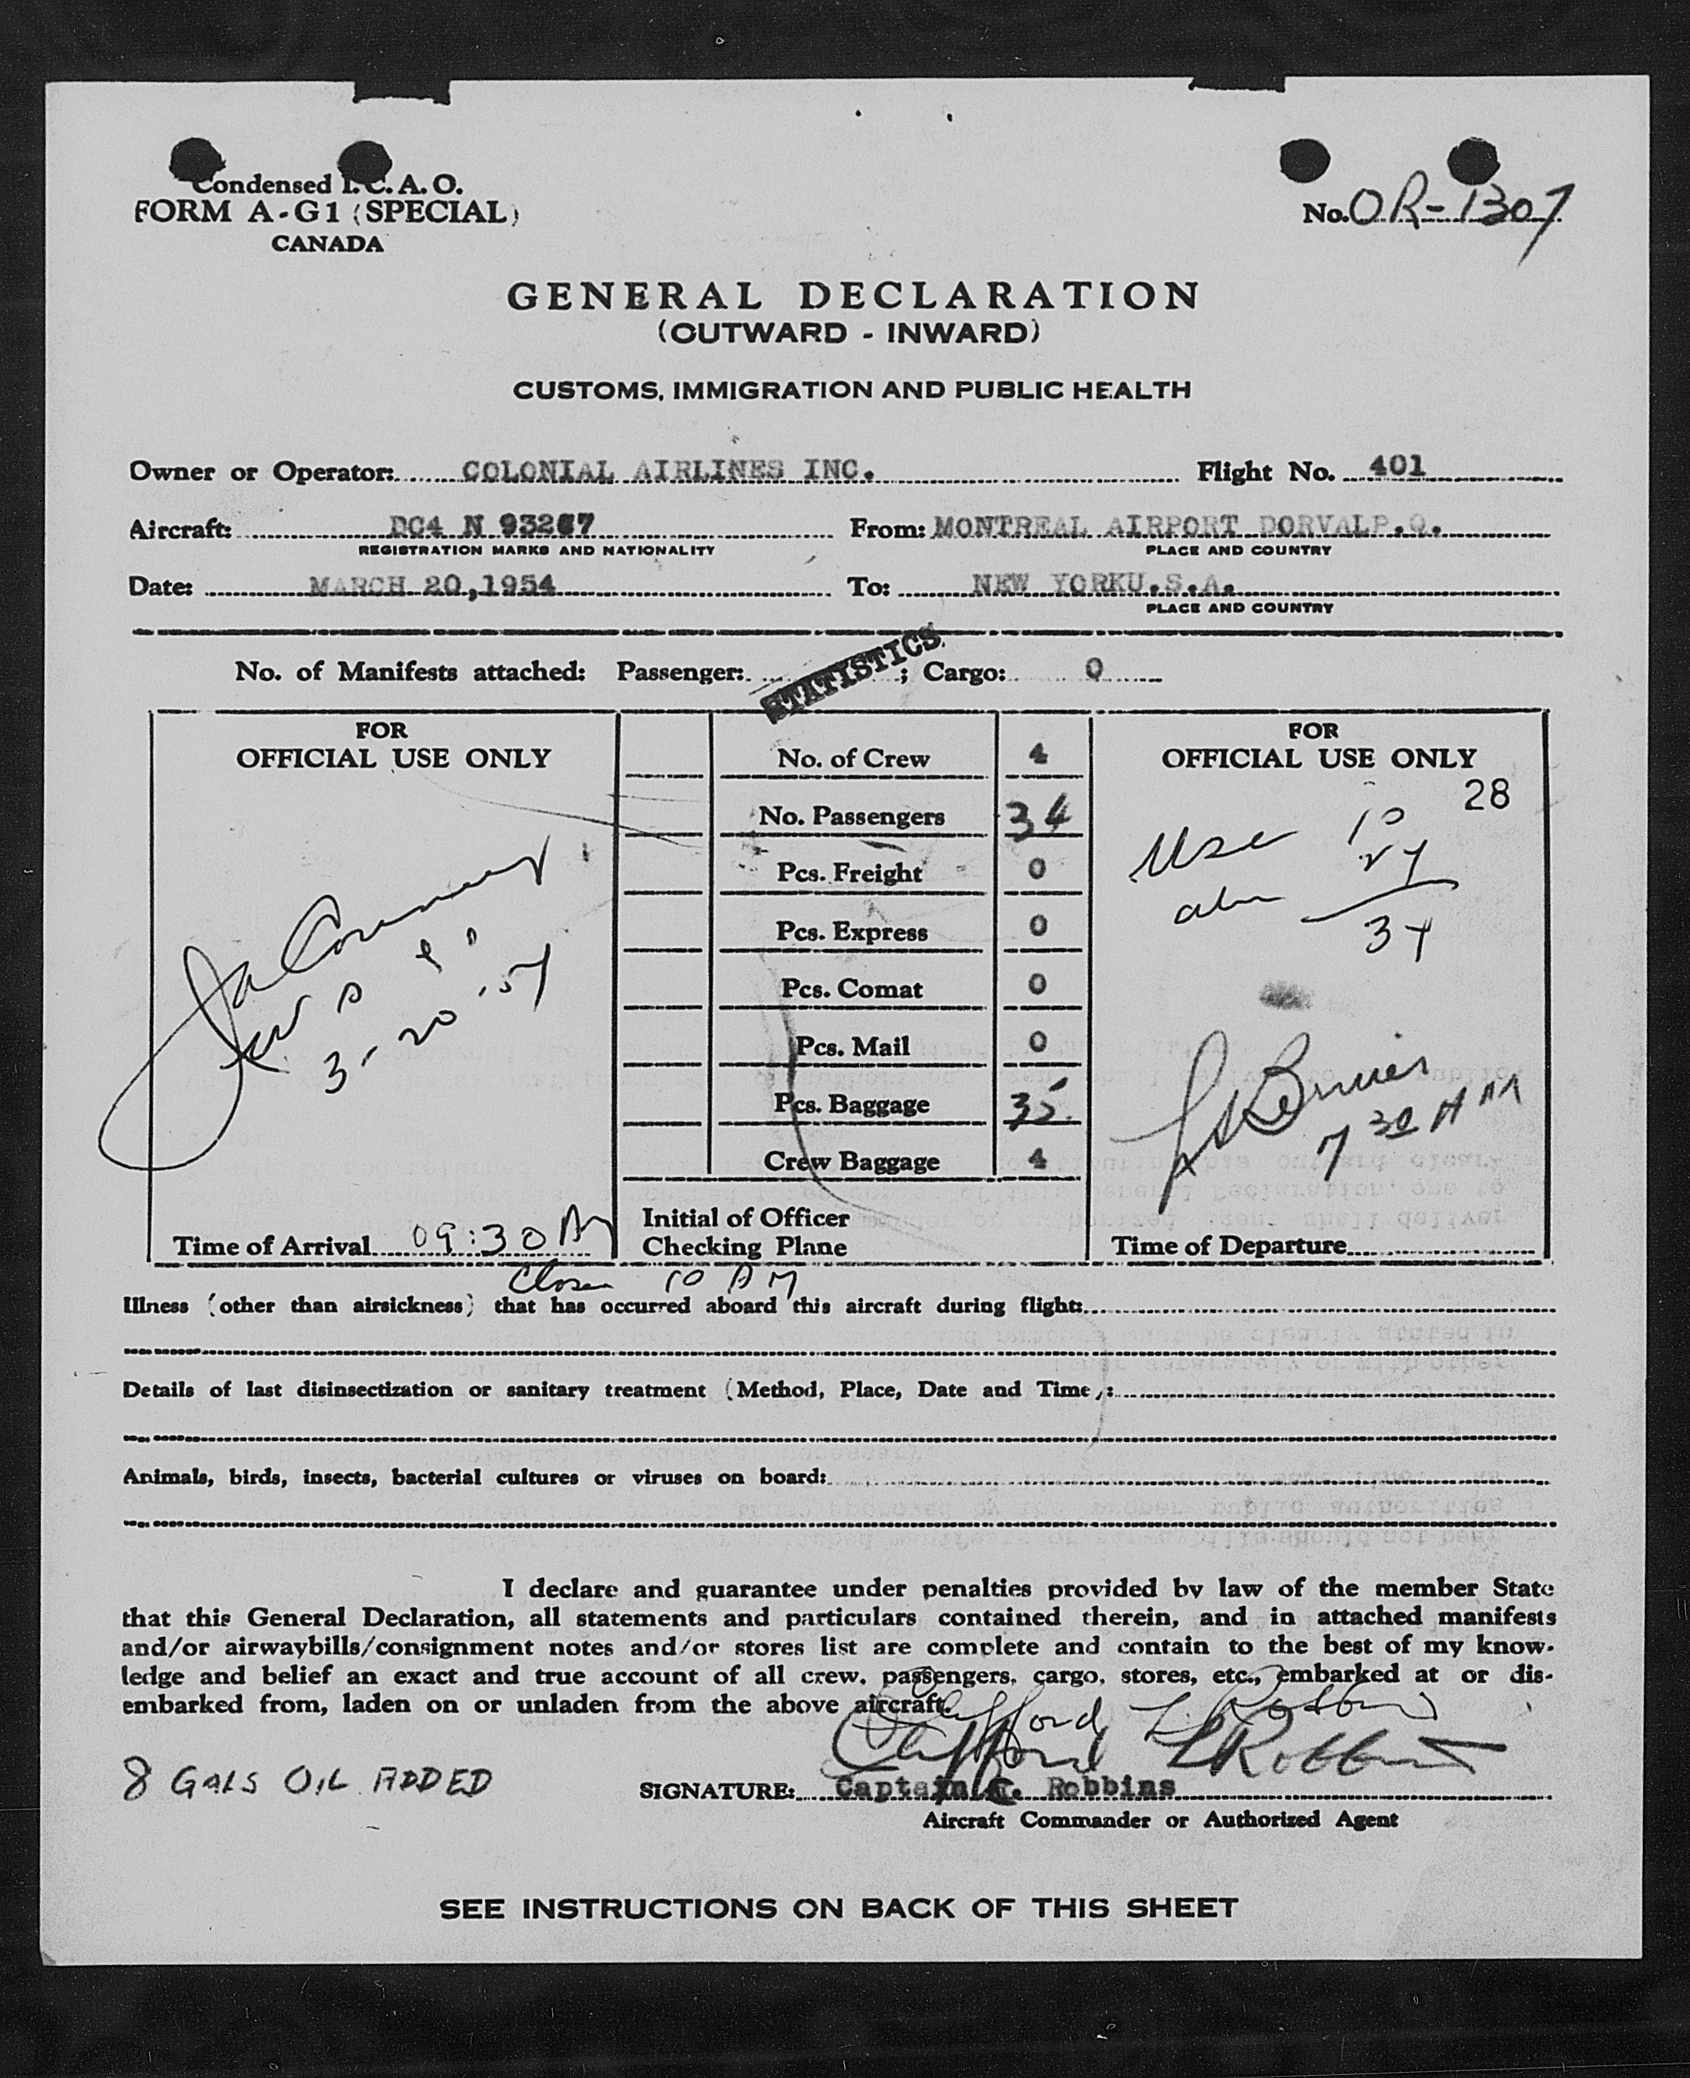 Condensed I.C.A.O.
FORM A-G1 (SPECIAL)
CANADA
No. OR-1307
GENERAL DECLARATION
(OUTWARD - INWARD)
CUSTOMS, IMMIGRATION AND PUBLIC HEALTH
Owner or Operator: COLONIAL AIRLINES INC. Flight No. 401
Aircraft: DC4 N 93267 From: MONTREAL AIRPORT DORVALP.Q.
REGISTRATION MARKS AND NATIONALITY PLACE AND COUNTRY
Date: MARCH 20,1954 To: NEW YORKU.S.A.
PLACE AND COUNTRY
STATISTICS
No. of Manifests attached: Passenger: ; Cargo: 0
FOR
OFFICIAL USE ONLY
3-20-54
Time of Arrival 09:30 AM
No. of Crew 4
No. Passengers 34
Pcs. Freight 0
Pcs. Express 0
Pcs. Comat 0
Pcs. Mail 0
Pcs. Baggage 35
Crew Baggage 4
Initial of Officer
Checking Plane
FOR
OFFICIAL USE ONLY
28
USC 10
24
34
7 30 AM
Time of Departure
Close 10 AM
Illness (other than airsickness) that has occurred aboard this aircraft during flight:
Details of last disinsectization or sanitary treatment (Method, Place, Date and Time):
Animals, birds, insects, bacterial cultures or viruses on board:
I declare and guarantee under penalties provided by law of the member State
that this General Declaration, all statements and particulars contained therein, and in attached manifests
and/or airwaybills/consignment notes and/or stores list are complete and contain to the best of my know-
ledge and belief an exact and true account of all crew, passengers, cargo, stores, etc., embarked at or dis-
embarked from, laden on or unladen from the above aircraft.
Clifford L. Robbins
Clifford L Robbins
8 GALS OIL ADDED
SIGNATURE: Captain C. Robbins
Aircraft Commander or Authorized Agent
SEE INSTRUCTIONS ON BACK OF THIS SHEET